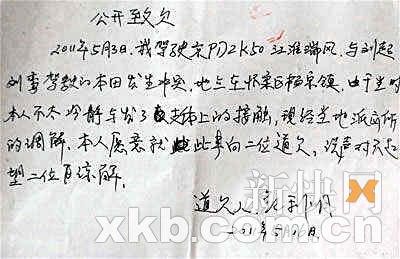 公开致欠
2011年5月3日, 我驾驶京PD2K50江淮瑞风, 与刘起
刘李驾驶的本田发生冲突, 地点在怀柔区杨宋镇, 由于当时
本人不太冷静与发了肢体上的接触, 现经当地派出所
的调解, 本人愿意就此事向二位道欠, 说声对不起
望二位见谅解。
道欠人
2011年5月6日
新快网
xkb.com.cn